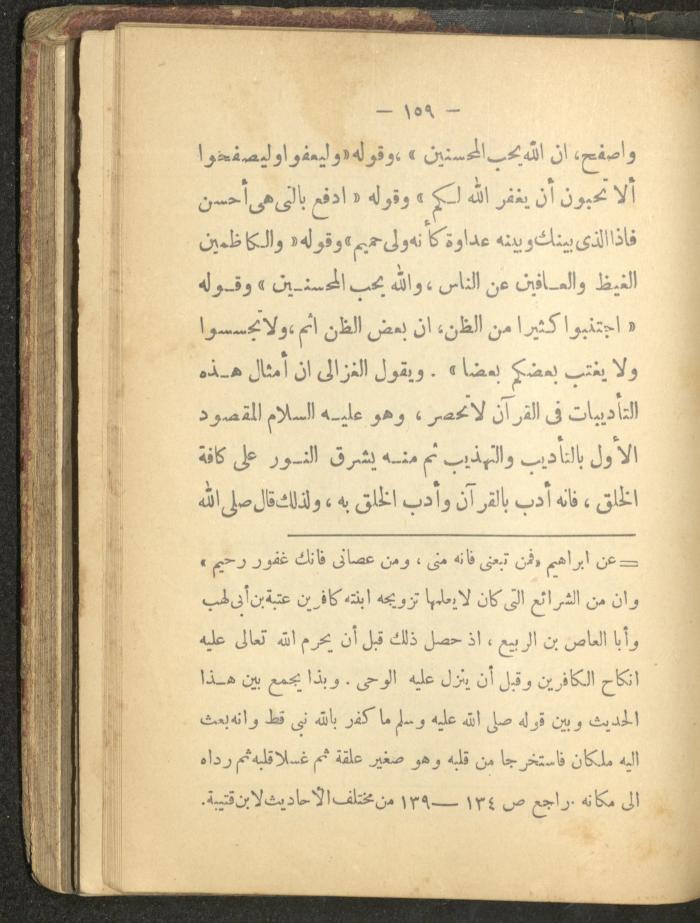 — ١٥٩ —
واصفح، ان الله يحب المحسنين » ،وقوله «وليعفوا وليصفحوا
ألا تحبون أن يغفر الله لكم » وقوله « ادفع بالتى هى أحسن
فاذا الذى بينك وبينه عداوة كأنه ولى حميم »وقوله« والكاظمين
الغيظ والعافين عن الناس ، والله يحب المحسنين » وقوله
« اجتنبوا كثيرا من الظن، ان بعض الظن اثم ،ولا تجسسوا
ولا يغتب بعضكم بعضا » . ويقول الغزالى ان أمثال هذه
التأديبات فى القرآن لاتحصر ، وهو عليه السلام المقصود
الأول بالتأديب والتهذيب ثم منه يشرق النور على كافة
الخلق ، فانه أدب بالقرآن وأدب الخلق به ، ولذلك قال صلى الله
= عن ابراهيم «فمن تبعنى فانه منى ، ومن عصانى فانك غفور رحيم »
وان من الشرائع التى كان لايعلمها تزويجه ابنته كافرين عتبة بن أبى لهب
وأبا العاص بن الربيع ، اذ حصل ذلك قبل أن يحرم الله تعالى عليه
انكاح الكافرين وقبل أن ينزل عليه الوحى . وبذا يجمع بين هذا
الحديث وبين قوله صلى الله عليه وسلم ما كفر بالله نبى قط وانه بعث
اليه ملكان فاستخرجا من قلبه وهو صغير علقة ثم غسلا قلبه ثم رداه
الى مكانه .راجع ص ١٣٤ — ١٣٩ من مختلف الأحاديث لابن قتيبة.